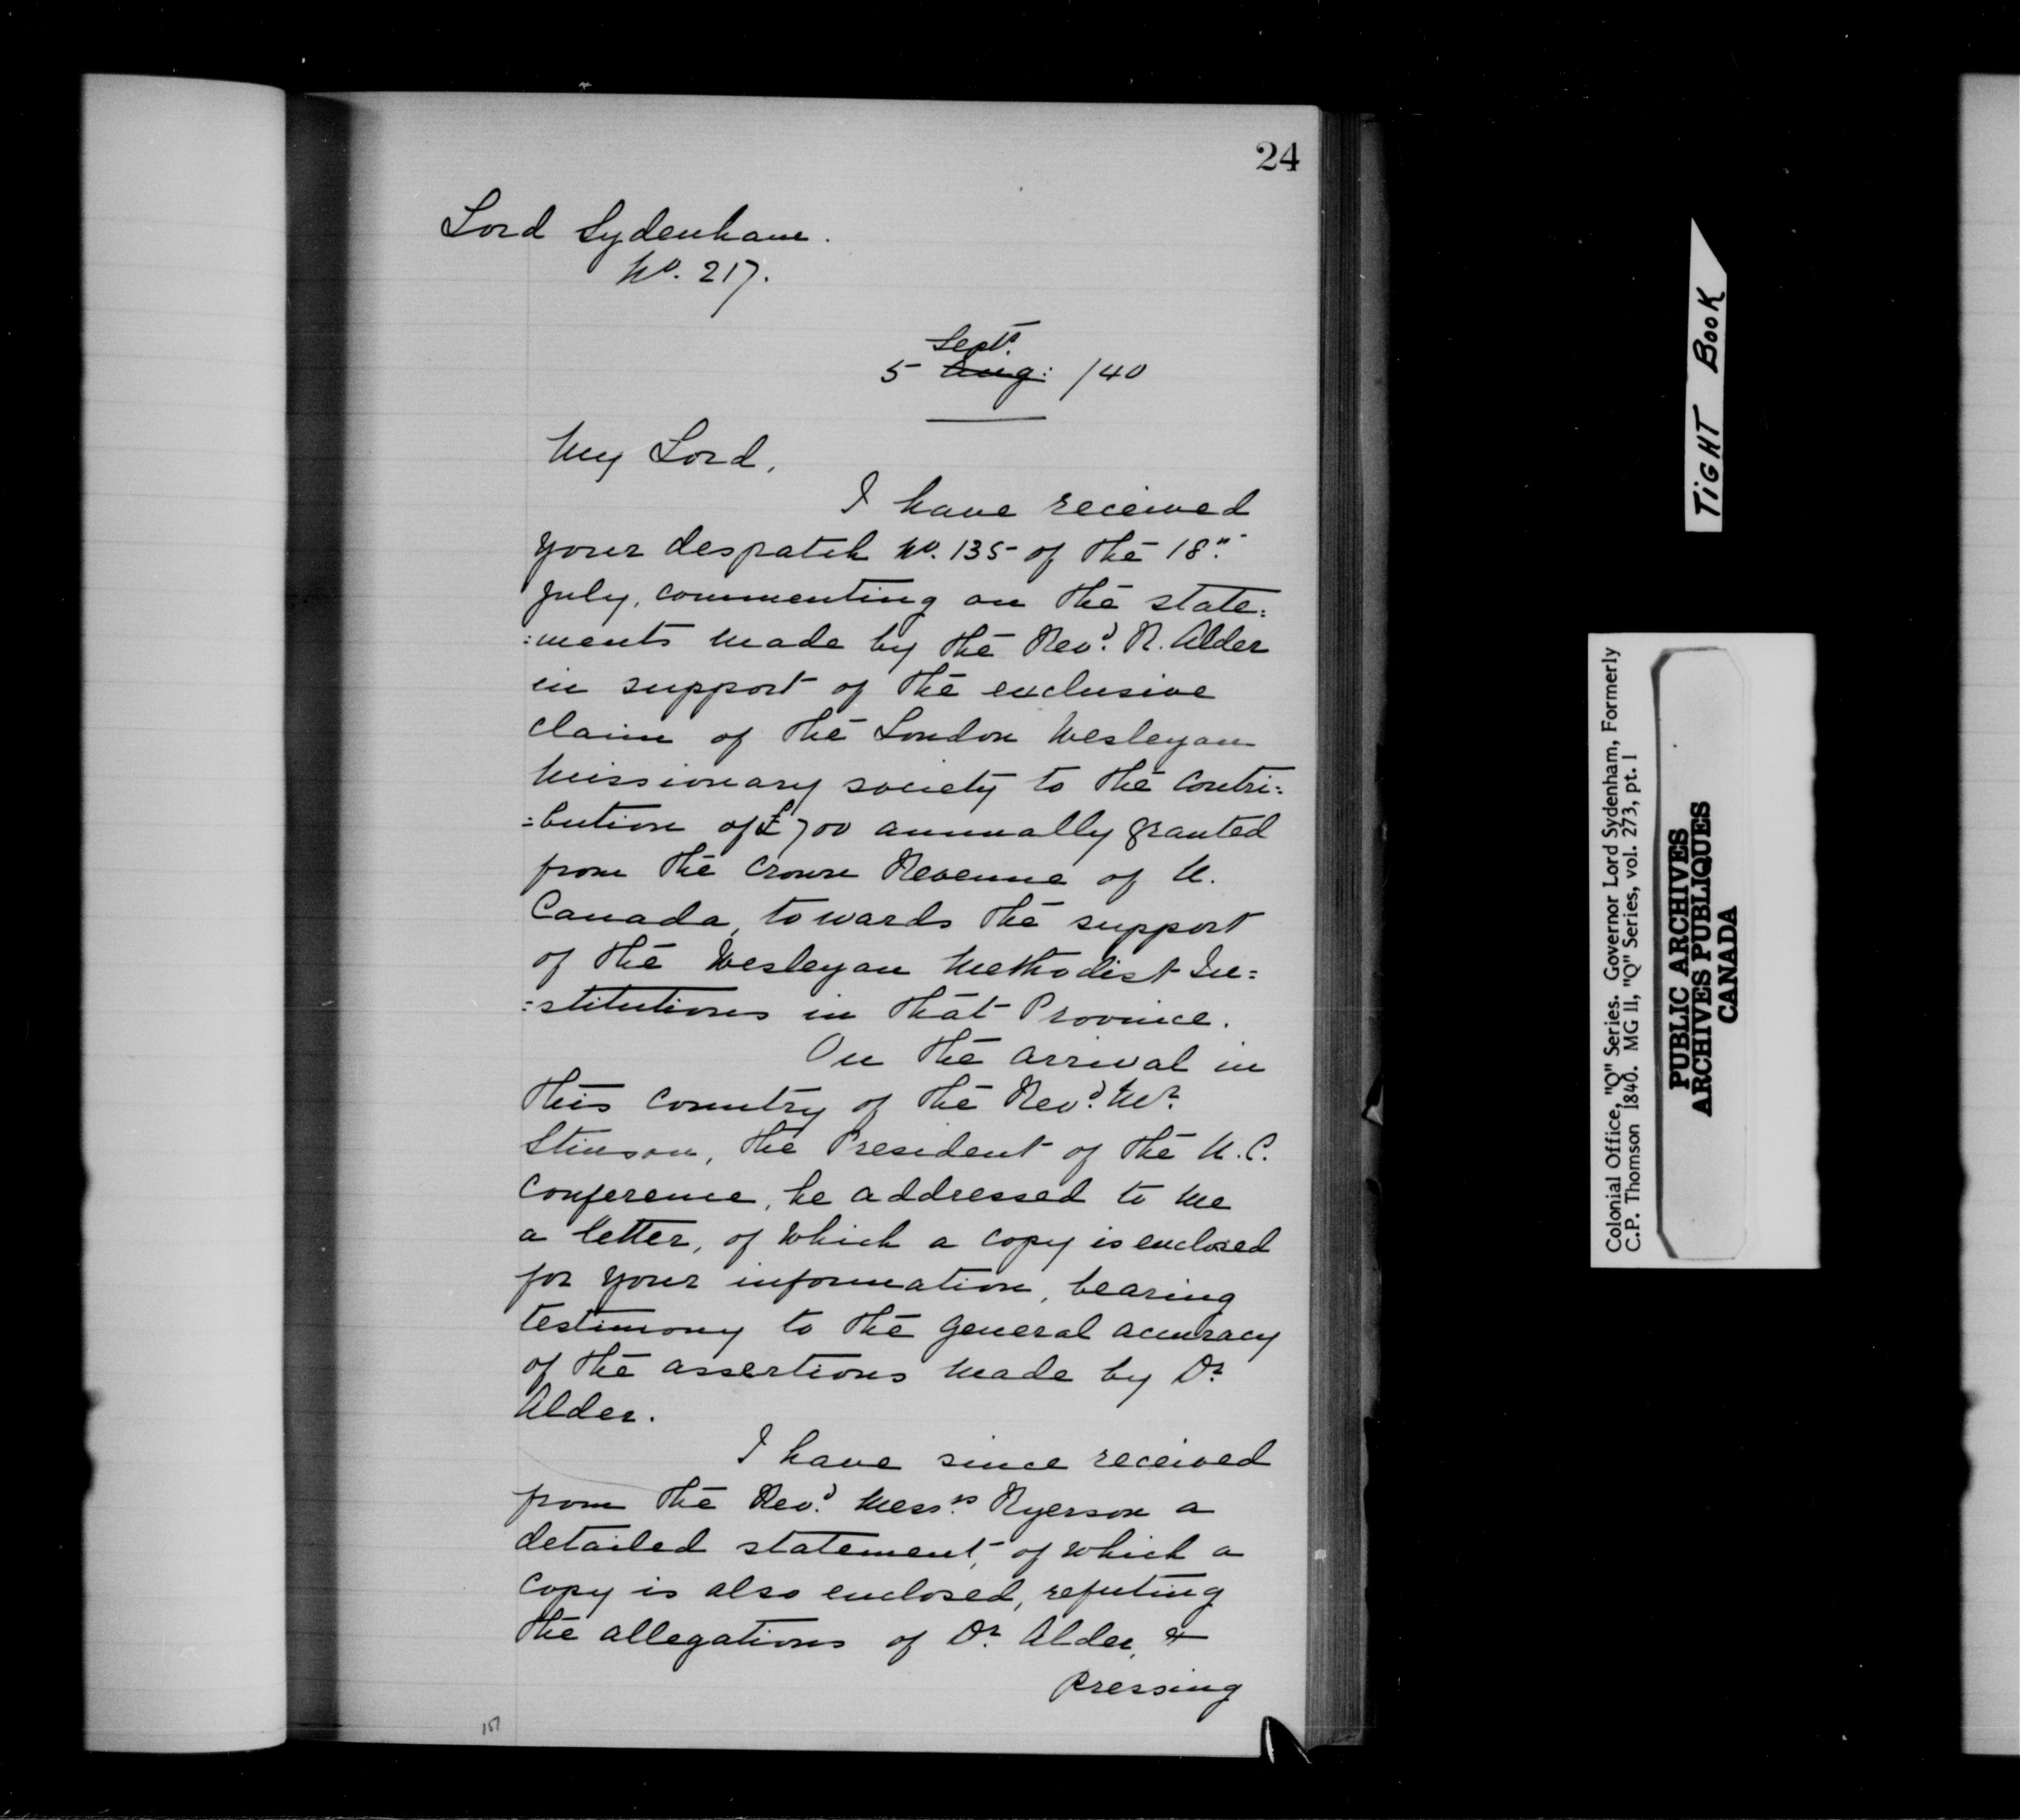 24
Lord Sydenham.
No. 217.
Sept.
5 Aug: /40
My Lord,
I have received
your despatch No. 135 of the 18"
July, commenting on the state:
:ments made by the Revd. R. Alder
in support of the exclusive
claim of the London Wesleyan
Missionary society to the contri:
:bution of £700 annually granted
from the Crown Revenue of U.
Canada, towards the support
of the Wesleyan Methodist In:
:stitutions in that Province.
On the arrival in
this country of the Revd. Mr.
Stinson, the President of the U.C.
Conference, he addressed to me
a letter, of which a copy is enclosed
for your information, bearing
testimony to the general accuracy
of the assertions made by Dr.
Alder.
I have since received
from the Revd. Messrs. Ryerson a
detailed statement, of which a
copy is also enclosed, refuting
the allegations of Dr. Alder, &
pressing
151
TIGHT BOOK
Colonial Office, "Q" Series. Governor Lord Sydenham, Formerly
C.P. Thomson 1840. MG 11, "Q" Series, vol. 273, pt. 1
PUBLIC ARCHIVES
ARCHIVES PUBLIQUES
CANADA